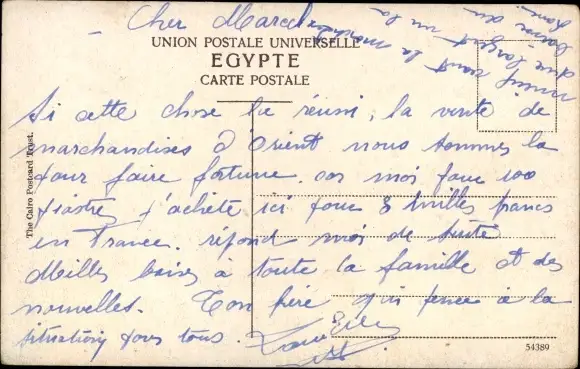 Cher Marcel
UNION POSTALE UNIVERSELLE
EGYPTE
CARTE POSTALE
Si cette chose là réussi, la vente de
marchandises d'Orient nous sommes là
pour faire fortune. car moi pour 100
piastres j'achète ici pour 3 milles francs
en France. répond moi de suite
Milles baises à toute la famille et des
nouvelles. Ton frère qui pense à la
situation pour tous.
The Cairo Postcard Trust.
54389